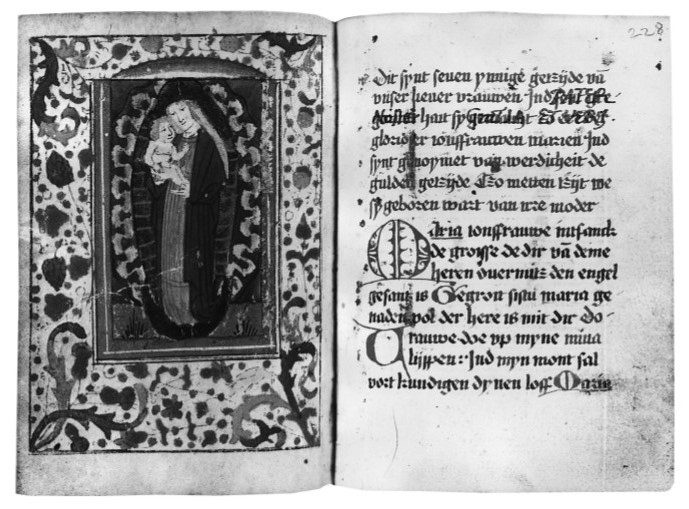 228
Dit sÿnt seuen ÿnnige getzijde vā
vnser lieuer vrauwen Ind
hait sÿ
glorid iouffrauwen marien Ind
sÿnt genoymet van werdicheit de
gulden getzijde Tzo metten tzijt we
sÿ geboren wart van irre moder
Maria iouffrauwe intfanck
de groisse de dir vā deme
heren ouermitz den engel
gesant is Gegroit sistu maria ge
naden vol der here is mit dir Do
vrauwe doe vp myne
lijppen Ind myn mont sal
vort kundigen dynen loff Maria